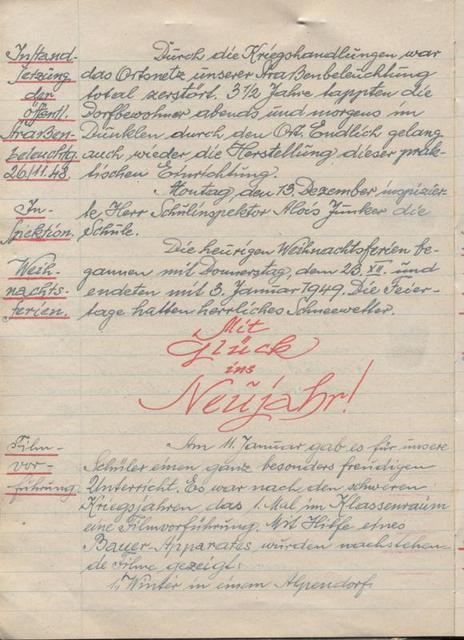 Instand-
setzung
der
öffentl.
Straßen-
beleuchtg.
26/11.48.
Durch die Kriegshandlungen war
das Ortsnetz unserer Straßenbeleuchtung
total zerstört. 3 1/2 Jahre tappten die
Dorfbewohner abends und morgens im
Dunklen durch den Ort. Endlich gelang
auch wieder die Herstellung dieser prak-
tischen Einrichtung.
In-
spektion.
Montag, den 13. Dezember inspizier-
te, Herr Schulinspektor Alois Junker die
Schule.
Weih-
nachts-
ferien.
Die heurigen Weihnachtsferien be-
gannen mit Donnerstag, dem 23. XII. und
endeten mit 3. Januar 1949. Die Feier-
tage hatten herrliches Schneewetter.
Mit
Glück
ins
Neujahr!
Film-
vor-
führung.
Am 11. Januar gab es für unsere
Schüler einen ganz besonders freudigen
Unterricht. Es war nach den schweren
Kriegsjahren das 1. Mal im Klassenraum
eine Filmvorführung. Mit Hilfe eines
Bauer-Apparates wurden nachstehen-
de Filme gezeigt:
1, Winter in einem Alpendorf